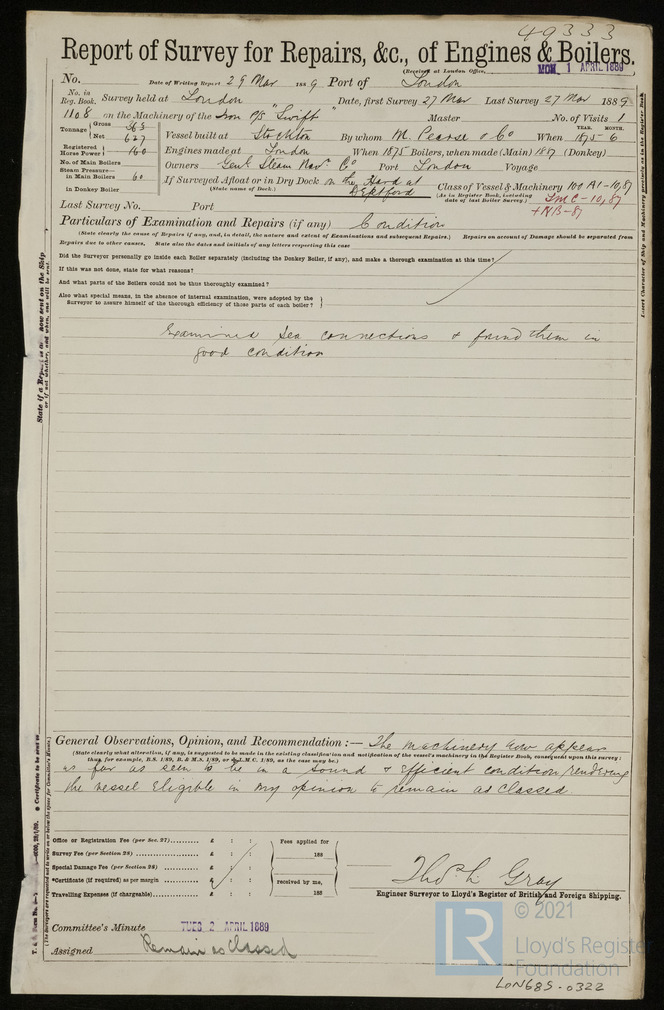 49333
Report of Survey for Repairs, &c., of Engines & Boilers.
(Received at London Office, MON. 1 APRIL 1889
No. Date of Writing Report 29 Mar 1889 Port of London
No. in Reg. Book. Survey held at London Date, first Survey 27 Mar Last Survey 27 Mar 1889
1108 on the Machinery of the Iron P/S "Swift" Master No. of Visits 1
Tonnage { Gross 
Net 627
Vessel built at Stockton By whom M. Pearse & Co When YEAR. MONTH. 1875-6
Registered Horse Power } 160 Engines made at London When 1875 Boilers, when made (Main) 1887 (Donkey)
No. of Main Boilers Owners Genl Steam Navn Co Port London Voyage
Steam Pressure— in Main Boilers 60 If Surveyed Afloat or in Dry Dock on the Hard at Deptford
(State name of Dock.)
in Donkey Boiler
Class of Vessel & Machinery 100 A1-10,87
(As in Register Book, including date of last Boiler Survey.) LMC-10,87
+NB-87
Last Survey No. Port
Particulars of Examination and Repairs (if any) Condition
(State clearly the cause of Repairs if any, and, in detail, the nature and extent of Examinations and subsequent Repairs.) Repairs on account of Damage should be separated from
Repairs due to other causes. State also the dates and initials of any letters respecting this case
Did the Surveyor personally go inside each Boiler separately (including the Donkey Boiler, if any), and make a thorough examination at this time?
If this was not done, state for what reasons?
And what parts of the Boilers could not be thus thoroughly examined?
Also what special means, in the absence of internal examination, were adopted by the
Surveyor to assure himself of the thorough efficiency of those parts of each boiler? }
Examined Sea connections & found them in
good condition
General Observations, Opinion, and Recommendation:— The machinery now appears
(State clearly what alteration, if any, is suggested to be made in the existing classification and notification of the vessel's machinery in the Register Book, consequent upon this survey:
thus, for example, B.S. 1/89, B. & M.S. 1/89, or L.M.C. 1/89, as the case may be.)
as far as seen to be in a sound & efficient condition, rendering
the vessel Eligible in my opinion to remain as classed
Office or Registration Fee (per Sec. 27) £ : :
Survey Fee (per Section 28) £ : :
Special Damage Fee (per Section 28) £ : :
*Certificate (if required) as per margin £ : :
Travelling Expenses (if chargeable) £ : :
Fees applied for
188
received by me,
188
Thos L. Gray
Engineer Surveyor to Lloyd's Register of British and Foreign Shipping.
Committee's Minute TUES. 2 APRIL 1889
Assigned Remain as Classed
LR © 2021
Lloyd's Register
Foundation
LON685-0322
Insert Character of Ship and Machinery precisely as in the Register Book.